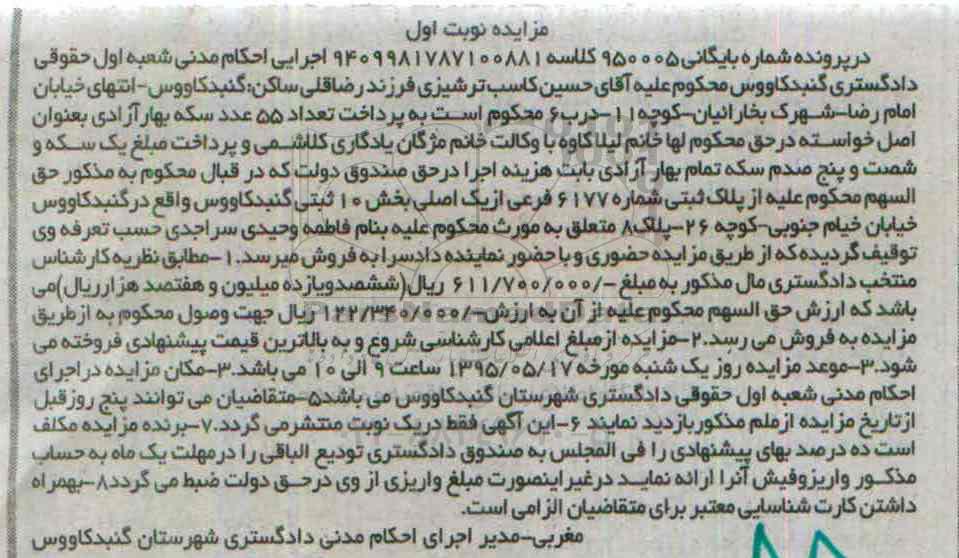 مزایده نوبت اول
در پرونده شماره بایگانی ۹۵۰۰۰۵ کلاسه ۹۴۰۹۹۸۱۷۸۷۱۰۰۸۸۱ اجرایی احکام مدنی شعبه اول حقوقی
دادگستری گنبدکاووس محکوم علیه آقای حسین کاسب ترشیزی فرزند رضاقلی ساکن: گنبدکاووس-انتهای خیابان
امام رضا-شهرک بخارائیان-کوچه ۱۱-درب۶ محکوم است به پرداخت تعداد ۵۵ عدد سکه بهار آزادی بعنوان
اصل خواسته درحق محکوم لها خانم لیلا کاوه با وکالت خانم مژگان یادگاری کلاشمی و پرداخت مبلغ یک سکه و
شصت و پنج صدم سکه تمام بهار آزادی بابت هزینه اجرا درحق صندوق دولت که در قبال محکوم به مذکور حق
السهم محکوم علیه از پلاک ثبتی شماره ۶۱۷۷ فرعی از یک اصلی بخش ۱۰ ثبتی گنبدکاووس واقع در گنبدکاووس
خیابان خیام جنوبی-کوچه ۲۶-پلاک۸ متعلق به مورث محکوم علیه بنام فاطمه وحیدی سراجدی حسب تعرفه وی
توقیف گردیده که از طریق مزایده حضوری و با حضور نماینده دادسرا به فروش میرسد.۱-مطابق نظریه کارشناس
منتخب دادگستری مال مذکور به مبلغ -/۶۱۱/۷۰۰/۰۰۰ ریال(ششصدویازده میلیون و هفتصد هزارریال)می
باشد که ارزش حق السهم محکوم علیه از آن به ارزش-/۱۲۲/۳۴۰/۰۰۰ ریال جهت وصول محکوم به از طریق
مزایده به فروش می رسد.۲-مزایده از مبلغ اعلامی کارشناسی شروع و به بالاترین قیمت پیشنهادی فروخته می
شود.۳-موعد مزایده روز یک شنبه مورخه ۱۳۹۵/۰۵/۱۷ ساعت ۹ الی ۱۰ می باشد.۴-مکان مزایده در اجرای
احکام مدنی شعبه اول حقوقی دادگستری شهرستان گنبدکاووس می باشد۵-متقاضیان می توانند پنج روز قبل
از تاریخ مزایده از ملم مذکور بازدید نمایند ۶-این آگهی فقط در یک نوبت منتشر می گردد.۷-برنده مزایده مکلف
است ده درصد بهای پیشنهادی را فی المجلس به صندوق دادگستری تودیع الباقی را در مهلت یک ماه به حساب
مذکور واریز و فیش آنرا ارائه نماید در غیر اینصورت مبلغ واریزی از وی در حق دولت ضبط می گردد۸-بهمراه
داشتن کارت شناسایی معتبر برای متقاضیان الزامی است.
مغربی-مدیر اجرای احکام مدنی دادگستری شهرستان گنبدکاووس